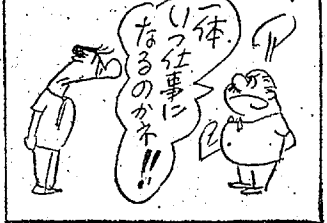 一体
いつ仕事に
なるのかネ!!